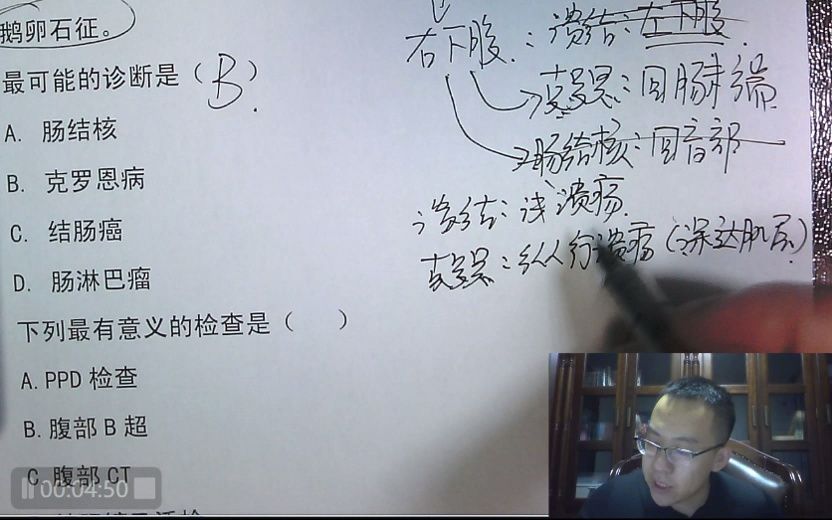 鹅卵石征。
最可能的诊断是（B）
A. 肠结核
B. 克罗恩病
C. 结肠癌
D. 肠淋巴瘤
下列最有意义的检查是（  ）
A.PPD 检查
B.腹部 B 超
C.腹部 CT
00:04:50
右下腹：溃结：左下腹
克罗恩：回肠末端
肠结核：回盲部
溃结：浅溃疡
克罗恩：纵行溃疡（深达肌层）